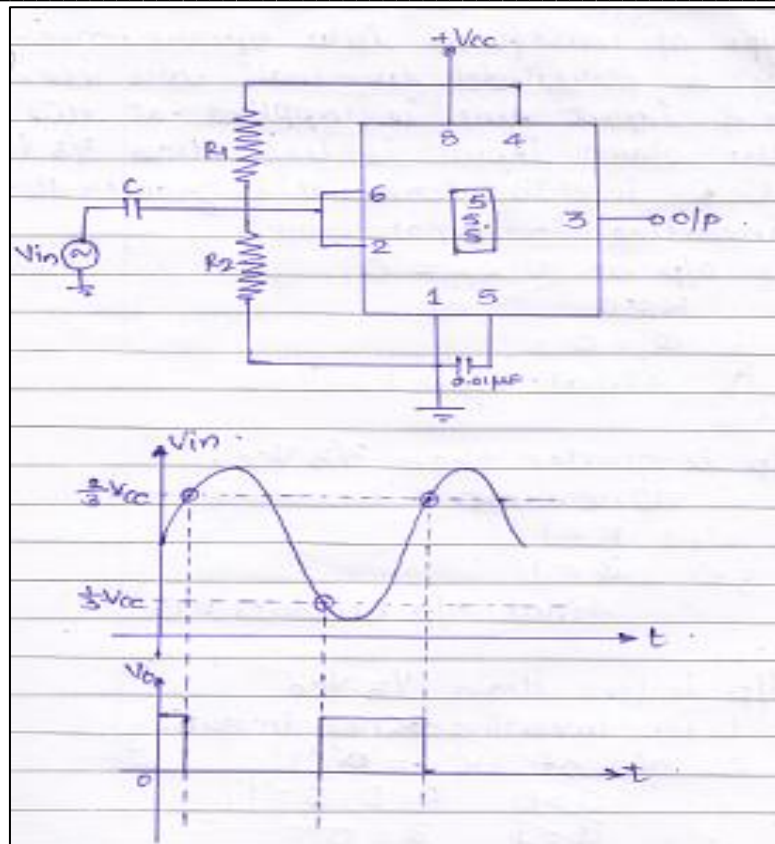 +Vcc
8 4
R1
C
6
5
5
5
3 o/p
Vin
R2
2
1 5
0.01μF
Vin
2/3 Vcc
1/3 Vcc
t
Vo
0
t